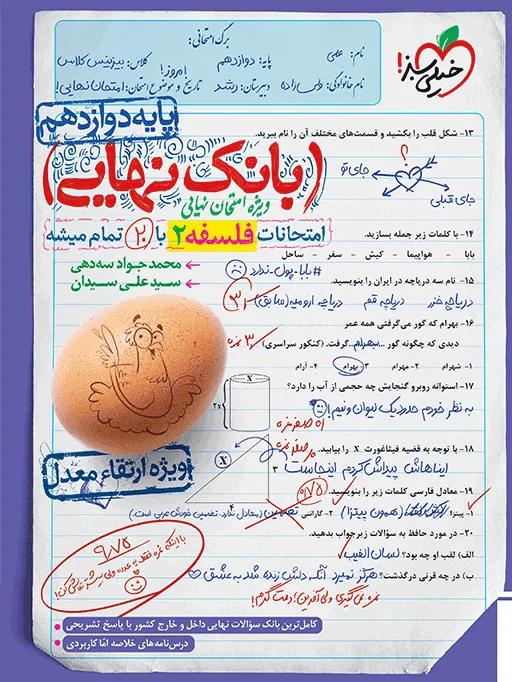 خیلی سبز!
برگ امتحانی:
نام: علی
پایه: دوازدهم
کلاس: بیزینس کلاس
نام خانوادگی: ولی‌زاده
دبیرستان: رشد
تاریخ و موضوع امتحان: امروز! امتحان نهایی!
پایه دوازدهم
(بانک نهایی)
ویژه امتحان نهایی
امتحانات فلسفه ۲ با ۲۰ تمام میشه
محمدجواد سه‌دهی
سیدعلی سیدان
ویژه ارتقاء معدل
۱۳- شکل قلب را بکشید و قسمت‌های مختلف آن را نام ببرید.
؟
جای تو
جای قبلی
۱۴- با کلمات زیر جمله بسازید.
بابا - هواپیما - کیش - سفر - ساحل
#بابا-پول-ندارد
۱۵- نام سه دریاچه در ایران را بنویسید.
دریاچه خزر دریاچه قم دریاچه ارومیه (سابق)
۱۶- بهرام که گور می‌گرفتی همه عمر
دیدی که چگونه گور ...بهرام... گرفت. (کنکور سراسری)
۱- شهرام ۲- مهرام ۳- بهرام ۴- آرام
۱۷- استوانه روبرو گنجایش چه حجمی از آب را دارد؟
X
2x
به نظر خودم حدود یک لیوان و نیم!
۱۸- با توجه به قضیه فیثاغورث X را بیابید.
X
۳
۴
ایناهاش پیداش کردم اینجاست
۱۹- معادل فارسی کلمات زیر را بنویسید.
۰/۷۵
۱- پیتزا (همون پیتزا) ۲- گارانتی تضمین
(معادل ندارد. تضمین خودش عربی است.)
۲۰- در مورد حافظ به سؤالات زیر جواب بدهید.
الف) لقب او چه بود؟ لسان الغیب
ب) در چه قرنی درگذشت؟ هرگز نمیرد آنکه دلش زنده شد به عشق
نمره نمی‌گیری ولی آفرین! دمت گرم!!
۹/۷۵
کامل‌ترین بانک سؤالات نهایی داخل و خارج کشور با پاسخ تشریحی
درس‌نامه‌های خلاصه امّا کاربردی